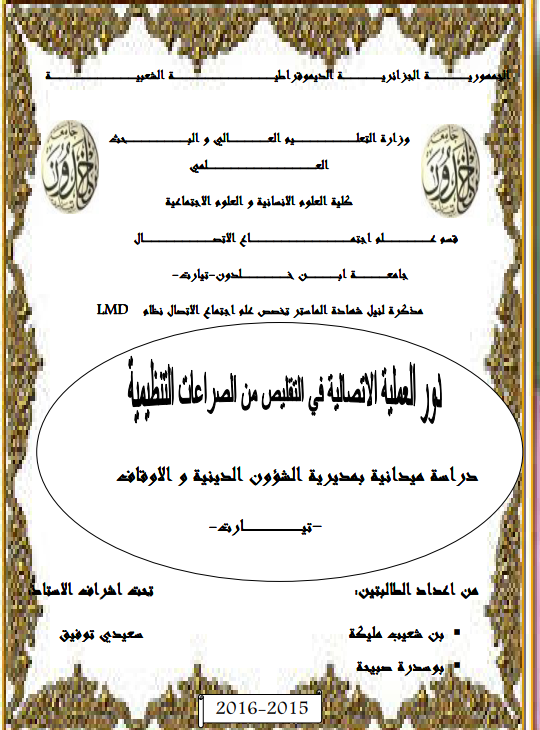 الجمهوريـــــة الجزائريـــــة الديموقراطيـــــــــــة الشعبيـــــــــــة
وزارة التعلـــــــيم العـــــالي و البـــــــــحث
العـــــــــــــلمي
كلية العلوم الانسانية و العلوم الاجتماعية
قسم عـــــــلم اجتمـــــــــــــاع الاتصـــــــــال
جامعـــــة ابـــــن خـــــــلدون-تيارت-
مذكرة لنيل شهادة الماستر تخصص علم اجتماع الاتصال نظام LMD
دور العملية الاتصالية في التقليص من الصراعات التنظيمية
دراسة ميدانية بمديرية الشؤون الدينية و الاوقاف
-تيـــــــــارت-
من اعداد الطالبتين:
تحت اشراف الاستاذ
▪ بن شعيب مليكة
سعيدي توفيق
▪ بوسدرة صبيحة
2016-2015